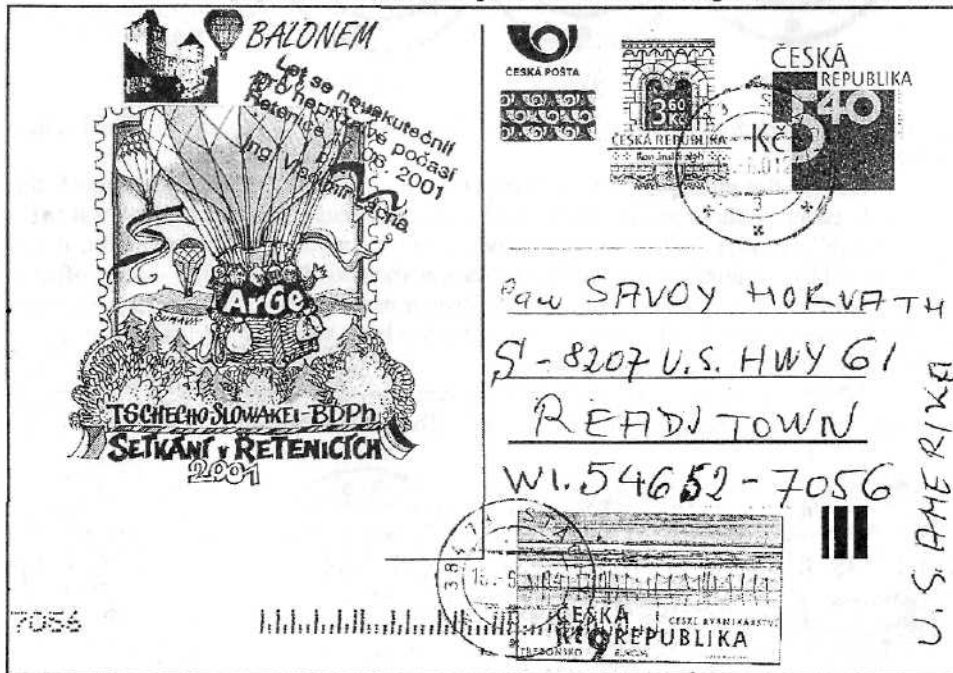 BALONEM
Let se neuskutečnil
pro nepříznivé počasí
Řetenice 06. 2001
Ing. Vladimír
ArGe
TSCHECHO SLOWAKEI-BDPh
SETKÁNÍ V ŘETENICÍCH
2001
ČESKÁ POŠTA
3.60
Kč
ČESKÁ REPUBLIKA
ČESKÁ
REPUBLIKA
5.40
Kč
3
Pan SAVOY HORVATH
S-8207 U.S. HWY 61
READJ TOWN
WI. 54652-7056
U.S. AMERIKA
384 71
ČESKÁ
REPUBLIKA
Kč 9
TŘEBOŇSKO
EUROPA
7056